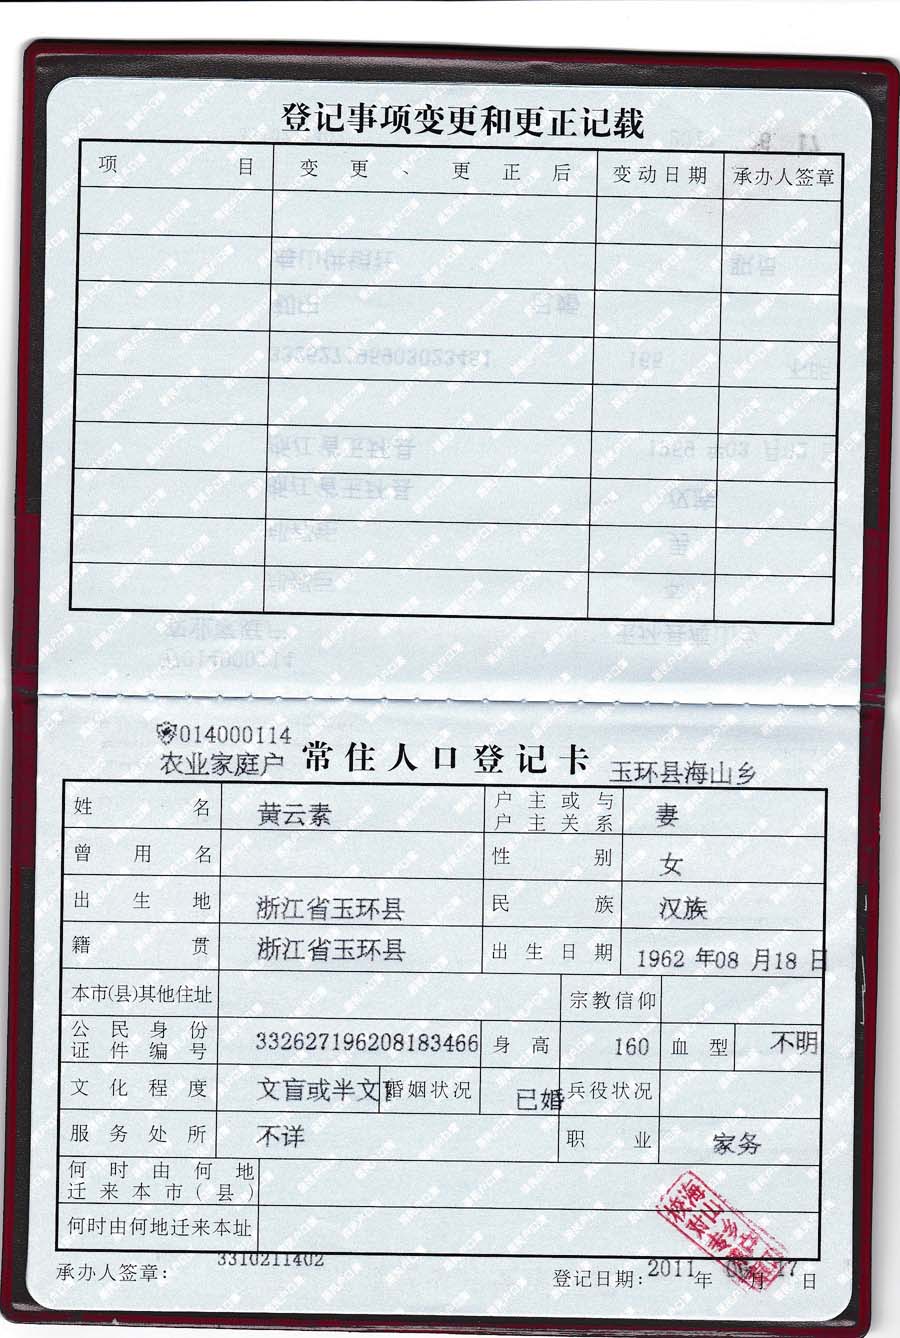 登记事项变更和更正记载
项目 变更、更正后 变动日期 承办人签章
014000114
农业家庭户 常住人口登记卡 玉环县海山乡
姓名 黄云素 户主或与户主关系 妻
曾用名 性别 女
出生地 浙江省玉环县 民族 汉族
籍贯 浙江省玉环县 出生日期 1962年08月18日
本市(县)其他住址 宗教信仰
公民身份证件编号 332627196208183466 身高 160 血型 不明
文化程度 文盲或半文 婚姻状况 已婚 兵役状况
服务处所 不详 职业 家务
何时由何地迁来本市(县)
何时由何地迁来本址
承办人签章: 3310211402 登记日期: 2011年 月17日